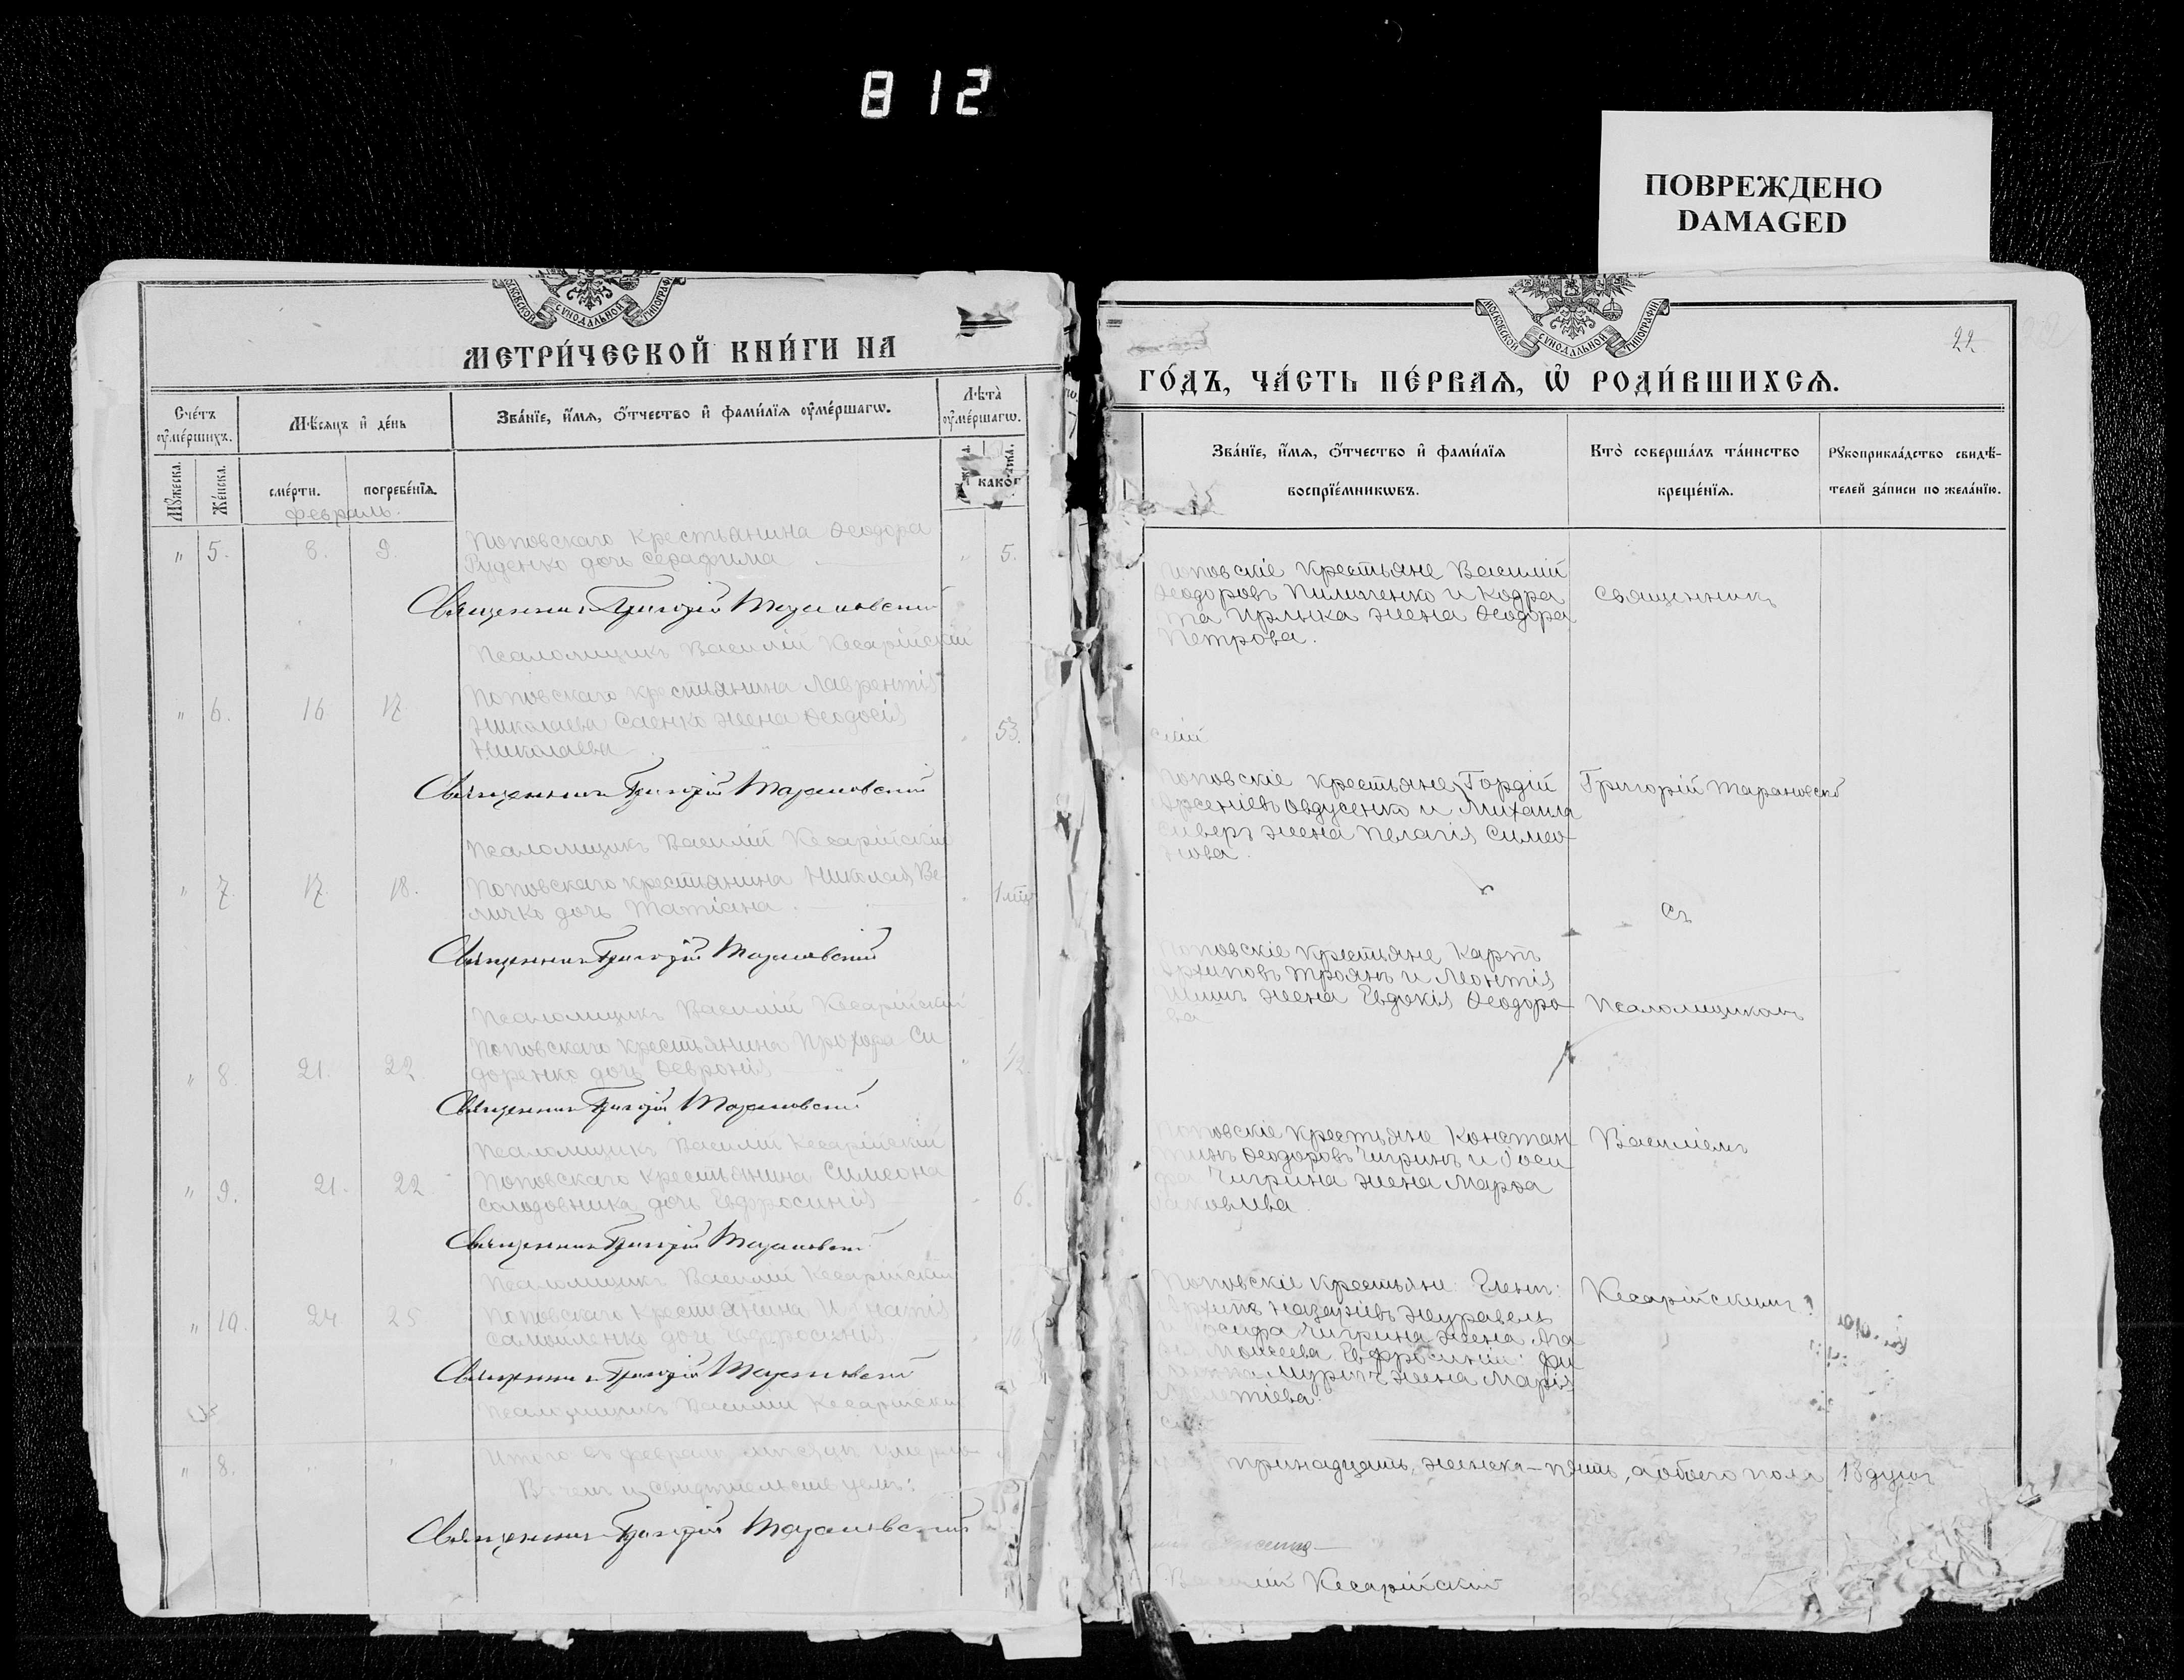 812
ПОВРЕЖДЕНО
DAMAGED
МОСКОВСКОЙ СѴНОДАЛЬНОЙ ТИПОГРАФІИ
МЕТРИ́ЧЕСКОЙ КНИ́ГИ НА
Сче́тъ ᲂу҆ме́ршихъ.
Мѣ́сяцъ и҆ де́нь
Зва́нїе, и҆́мѧ, ѻ҆́тчество и҆ фами́лїѧ ᲂу҆ме́ршагѡ.
Лѣта̀ ᲂу҆ме́ршагѡ.
Мꙋ́жеска.
Же́нска.
сме́рти.
погребе́нїѧ.
февраль.
" 5. 8. 9 Поповскаго крестьянина Ѳеодора 5.
Руденко дочь Серафима
Священникъ Григорій Тарановскій
Псаломщикъ Василій Кесарійскій
" 6. 16 17 Поповскаго крестьянина Лаврентія
Николаева Саенко жена Ѳеодосія 53.
Николаева
Священникъ Григорій Тарановскій
Псаломщикъ Василій Кесарійскій
" 7. 17 18. Поповскаго крестьянина Николая Ве-
личко дочь Татіана.
Священникъ Григорій Тарановскій
Псаломщикъ Василій Кесарійскій
Поповскаго крестьянина Прохора Си
" 8. 21. 22. доренко дочь Ѳевронія
Священникъ Григорій Тарановскій
Псаломщикъ Василій Кесарійскій
" 9. 21. 22. Поповскаго крестьянина Симеона 6.
Солодовника дочь Евфросинія
Священникъ Григорій Тарановскій
Псаломщикъ Василій Кесарійскій
" 10. 24 25 Поповскаго крестьянина Игнатія
Самойленко дочь Евфросинія
Священникъ Григорій Тарановскій
Псаломщикъ Василій Кесарійскій
" 8. Итого въ февралѣ мѣсяцѣ умерло
Въ чемъ и свидѣтельствуемъ:
Священникъ Григорій Тарановскій
МОСКОВСКОЙ СѴНОДАЛЬНОЙ ТИПОГРАФІИ
22
ГО́ДЪ, ЧА́СТЬ ПЕ́РВАѦ, Ѡ҆ РОДИ́ВШИХСѦ.
Зва́нїе, и҆́мѧ, ѻ҆́тчество и҆ фами́лїѧ
воспрїе́мникѡвъ.
Кто̀ соверша́лъ та́инство
креще́нїѧ.
Рꙋкоприкла́дство свидѣ́-
телей за́писи по жела́нїю.
Поповскіе крестьяне Василій
Ѳеодоровъ Пилипенко и Кодра
та Ирлыка жена Ѳеодора
Петрова.
Священникъ
Поповскіе крестьяне Гордій
Арсеніевъ Овдусенко и Михаила
жена Пелагія Симео-
нова.
Григорій Тарановскій
съ
Поповскіе крестьяне Карпъ
Архиповъ Троянъ и Леонтія
жена Евдокія Ѳеодоро-
ва
Псаломщикомъ
Поповскіе крестьяне Констан
тинъ Ѳеодоровъ Чигринъ и Іоси
фа Чигрина жена Марѳа
Яковлева
Василіемъ
Поповскіе крестьяне: Елены:
Архипъ Назаріевъ Журавель
и Іосифа Чигрина жена Ма
Моисеева Евфросиніи:
жена Марія
Кесарійскимъ
тринадцать, женска – пять, а обоего пола 18 душъ
Василій Кесарійскій